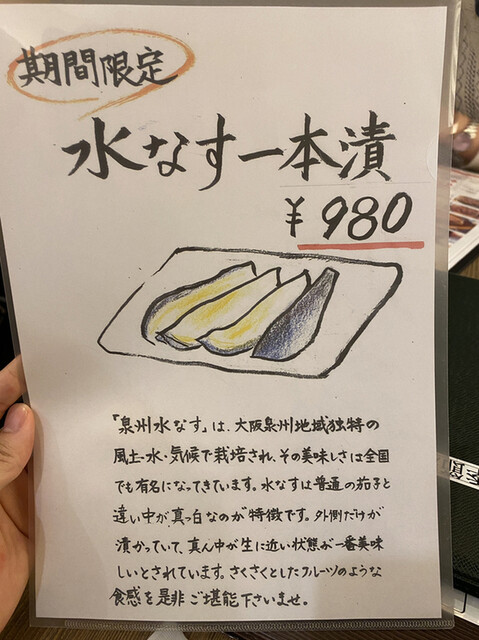 期間限定
水なす一本漬
¥980
「泉州水なす」は、大阪泉州地域独特の
風土・水・気候で栽培され、その美味しさは全国
でも有名になってきています。水なすは普通の茄子と
違い中が真っ白なのが特徴です。外側だけが
漬かっていて、真ん中が生に近い状態が一番美味
しいとされています。さくさくとしたフルーツのような
食感を是非ご堪能下さいませ。